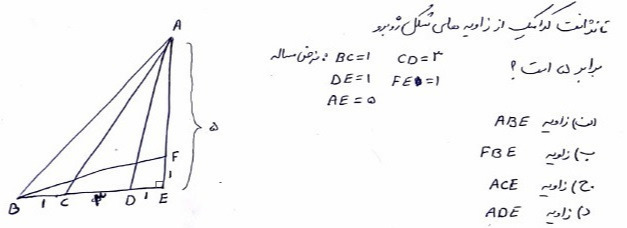 تانژانت کدامیک از زاویه های شکل روبرو
برابر ۵ است؟
فرض مساله: BC=۱ CD=۳
DE=۱ FE=۱
AE=۵
الف) زاویه ABE
ب) زاویه FBE
ج) زاویه ACE
د) زاویه ADE
A
۵
F
۱
B ۱ C ۳ D ۱ E